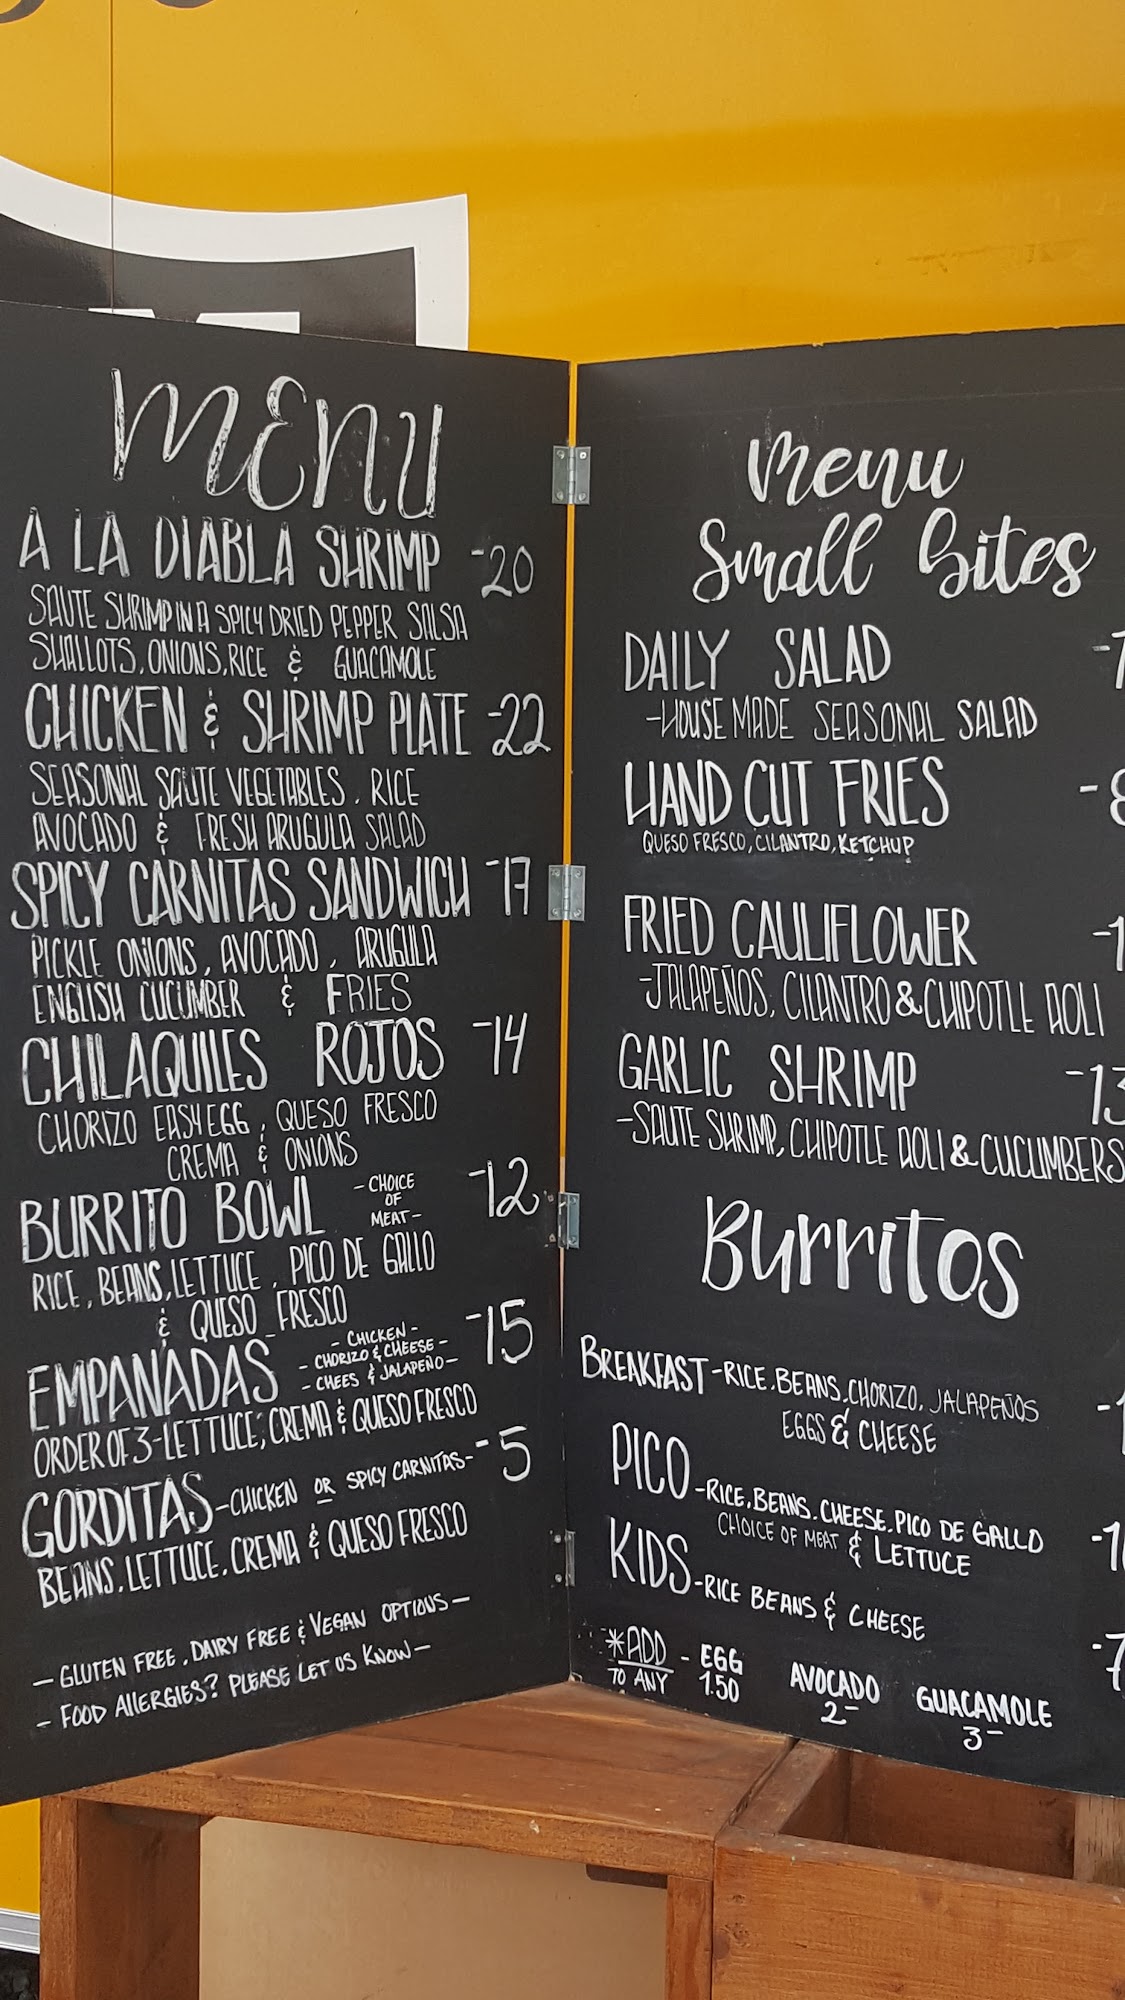 MENU
A LA DIABLA SHRIMP -20
SAUTE SHRIMP IN A SPICY DRIED PEPPER SALSA
SHALLOTS, ONIONS, RICE & GUACAMOLE
CHICKEN & SHRIMP PLATE -22
SEASONAL SAUTE VEGETABLES, RICE
AVOCADO & FRESH ARUGULA SALAD
SPICY CARNITAS SANDWICH -17
PICKLE ONIONS, AVOCADO, ARUGULA
ENGLISH CUCUMBER & FRIES
CHILAQUILES ROJOS -14
CHORIZO EASY EGG, QUESO FRESCO
CREMA & ONIONS
BURRITO BOWL -CHOICE OF MEAT- -12
RICE, BEANS, LETTUCE, PICO DE GALLO
& QUESO FRESCO
EMPANADAS -15
- CHICKEN -
- CHORIZO & CHEESE -
- CHEES & JALAPEÑO -
ORDER OF 3-LETTUCE, CREMA & QUESO FRESCO
GORDITAS -CHICKEN OR SPICY CARNITAS- -5
BEANS, LETTUCE, CREMA & QUESO FRESCO
- GLUTEN FREE, DAIRY FREE & VEGAN OPTIONS -
- FOOD ALLERGIES? PLEASE LET US KNOW -
Menu
Small Bites
DAILY SALAD
-HOUSE MADE SEASONAL SALAD
HAND CUT FRIES
QUESO FRESCO, CILANTRO, KETCHUP
FRIED CAULIFLOWER
-JALAPEÑOS, CILANTRO & CHIPOTLE AOLI
GARLIC SHRIMP -13
-SAUTE SHRIMP, CHIPOTLE AOLI & CUCUMBERS
Burritos
BREAKFAST -RICE, BEANS, CHORIZO, JALAPEÑOS
EGGS & CHEESE
PICO -RICE, BEANS, CHEESE, PICO DE GALLO
CHOICE OF MEAT & LETTUCE
KIDS -RICE BEANS & CHEESE -7
*ADD TO ANY - EGG 1.50 AVOCADO 2- GUACAMOLE 3-